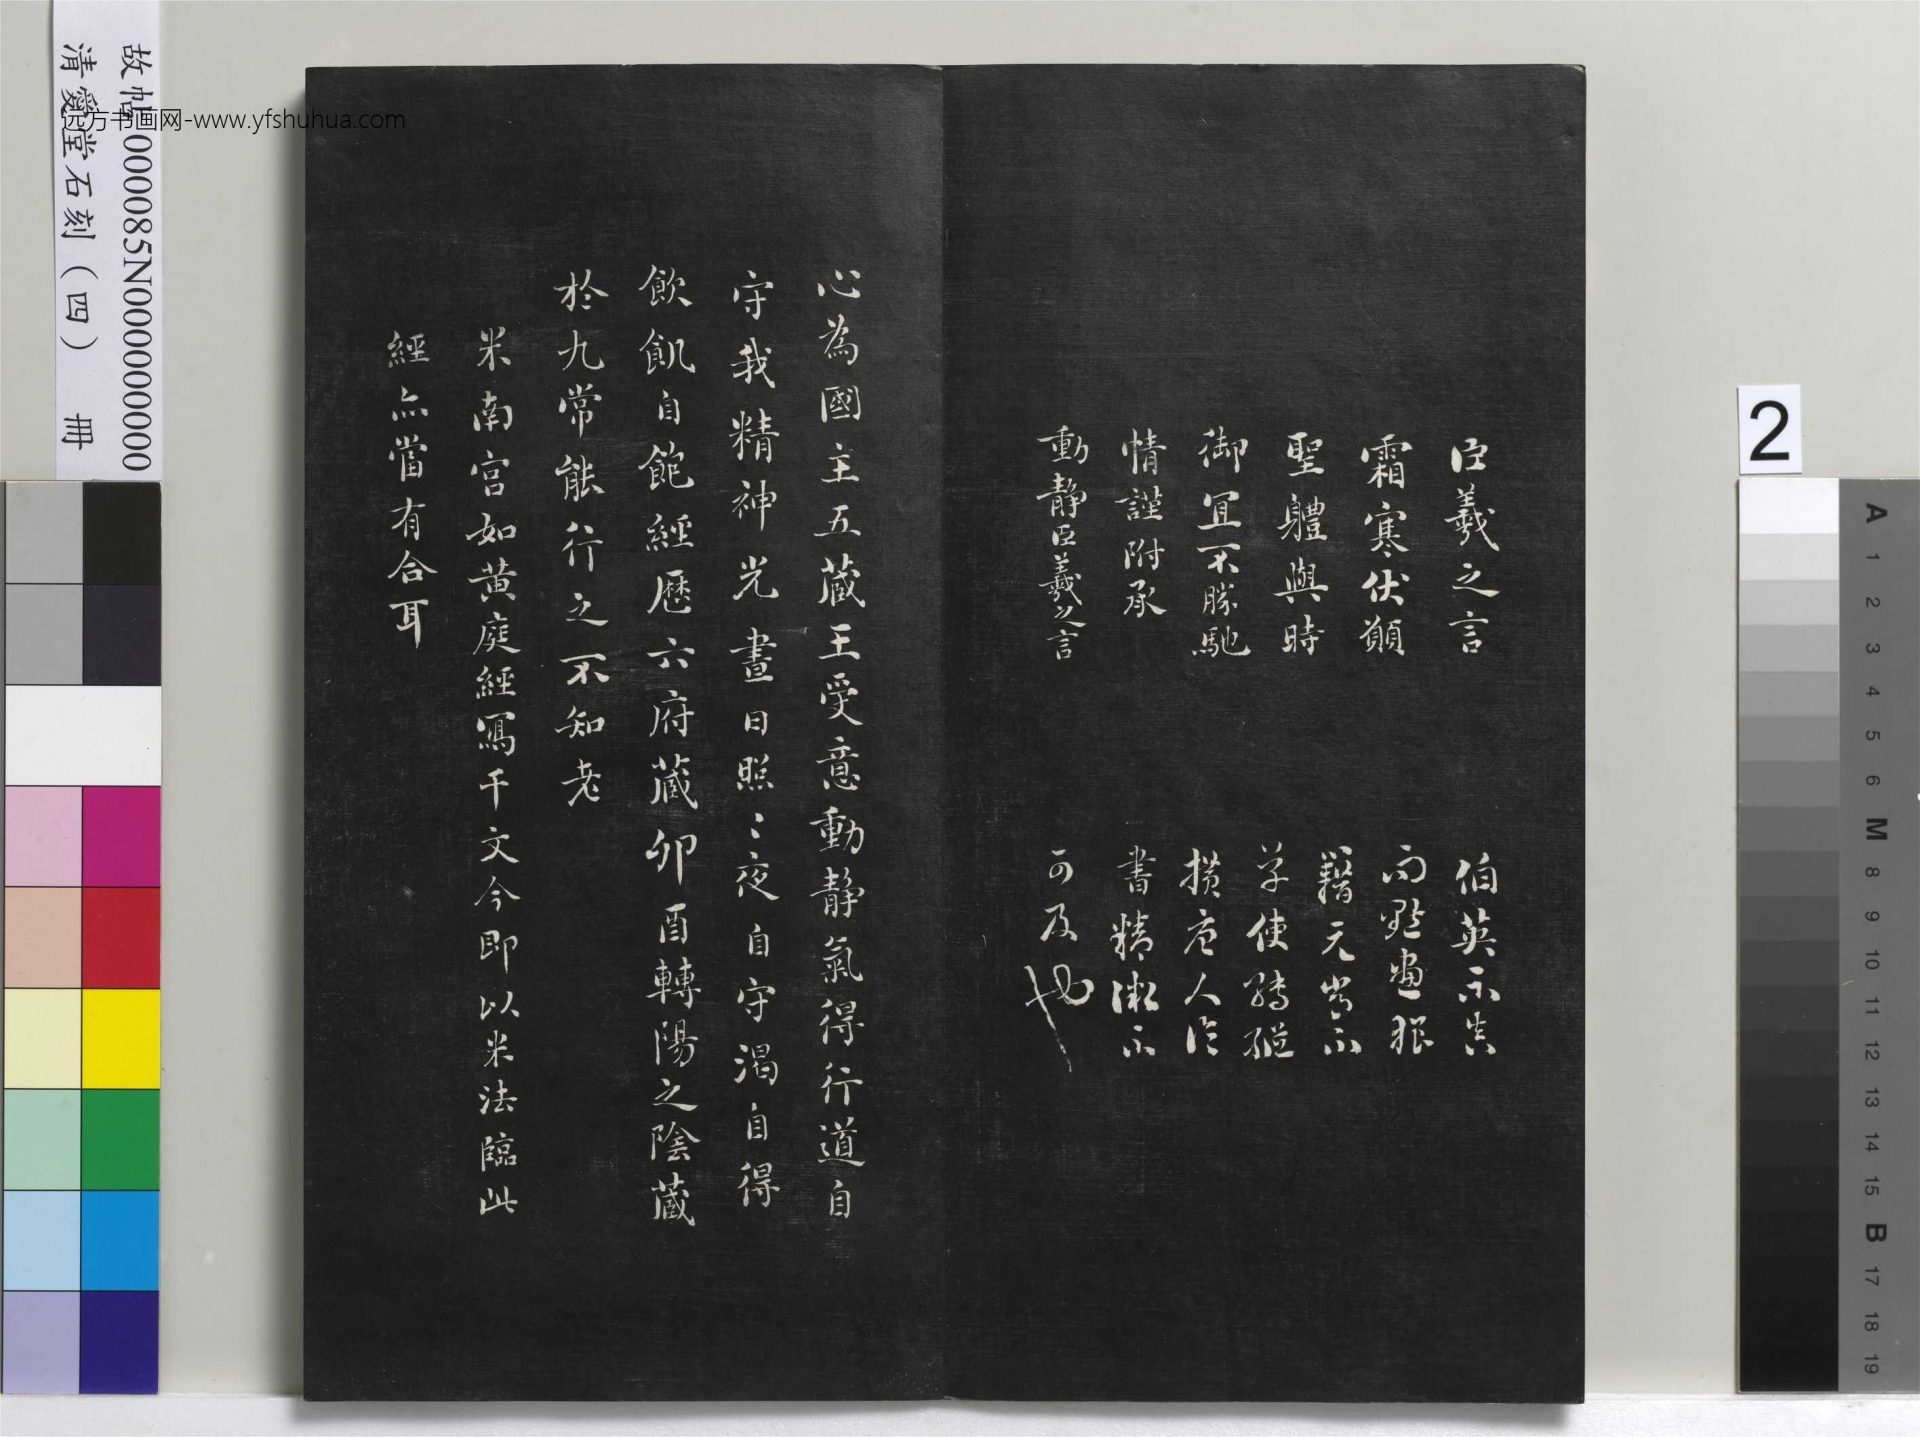 故帖000085N000000000
清愛堂石刻（四） 冊
远方书画网-www.yfshuhua.com
臣羲之言
霜寒伏願
聖體與時
御宜不勝馳
情謹附承
動静臣羲之言
伯英不真
而點畫狼
藉元常不
草使轉縱
横人作
書精微不
可及也
心為國主五藏王受意動静氣得行道自
守我精神光晝日照〻夜自守渴自得
飲飢自飽經歷六府藏卯酉轉陽之陰藏
於九常能行之不知老
米南宫如黄庭經寫千文今即以米法臨此
經亦當有合耳
2
A
1
2
3
4
5
6
M
8
9
10
11
12
13
14
15
B
17
18
19